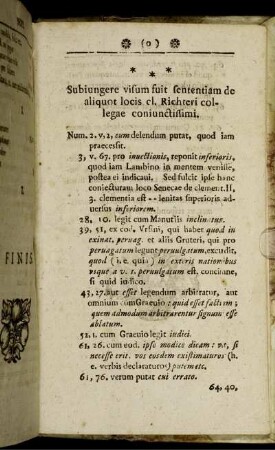 FINIS
( o )
* * *
Subiungere visum fuit sententiam de
aliquot locis cl. Richteri col-
legae coniunctissimi.
Num. 2. v. 2. eum delendum putat, quod iam
praecessit.
3, v. 67. pro inuectionis, reponit inferioris,
quod iam Lambino in mentem venisse,
postea ei indicaui. Sed fulcit ipse hanc
coniecturam loco Senecae de clement. II,
3. clementia est - - lenitas superioris ad-
uersus inferiorem.
28, 10. legit cum Manutiis
39, 51, ex cod. Vrsini, qui habet quod in
exinat. peruag. et aliis Gruteri, qui pro
peruagatum legunt peruulgatum, excudit,
quod (i. e. quia) in exteris nationibus
vsque a v. t. peruulgatum est, concione,
si quid iudico.
43, 27. aut esset legendum arbitratur, aut
omnium cum Graeuio: quid esset factum:
quem admodum arbitrarentur signum esse
ablatum.
52, 1. cum Graeuio legit indici.
61, 26. cum eod. ipso modice dicam: vt, si
necesse erit. vos eosdem existimaturos (h.
e. verbis declaraturos) putem etc.
61, 76. verum putat cui errato.
64, 40,